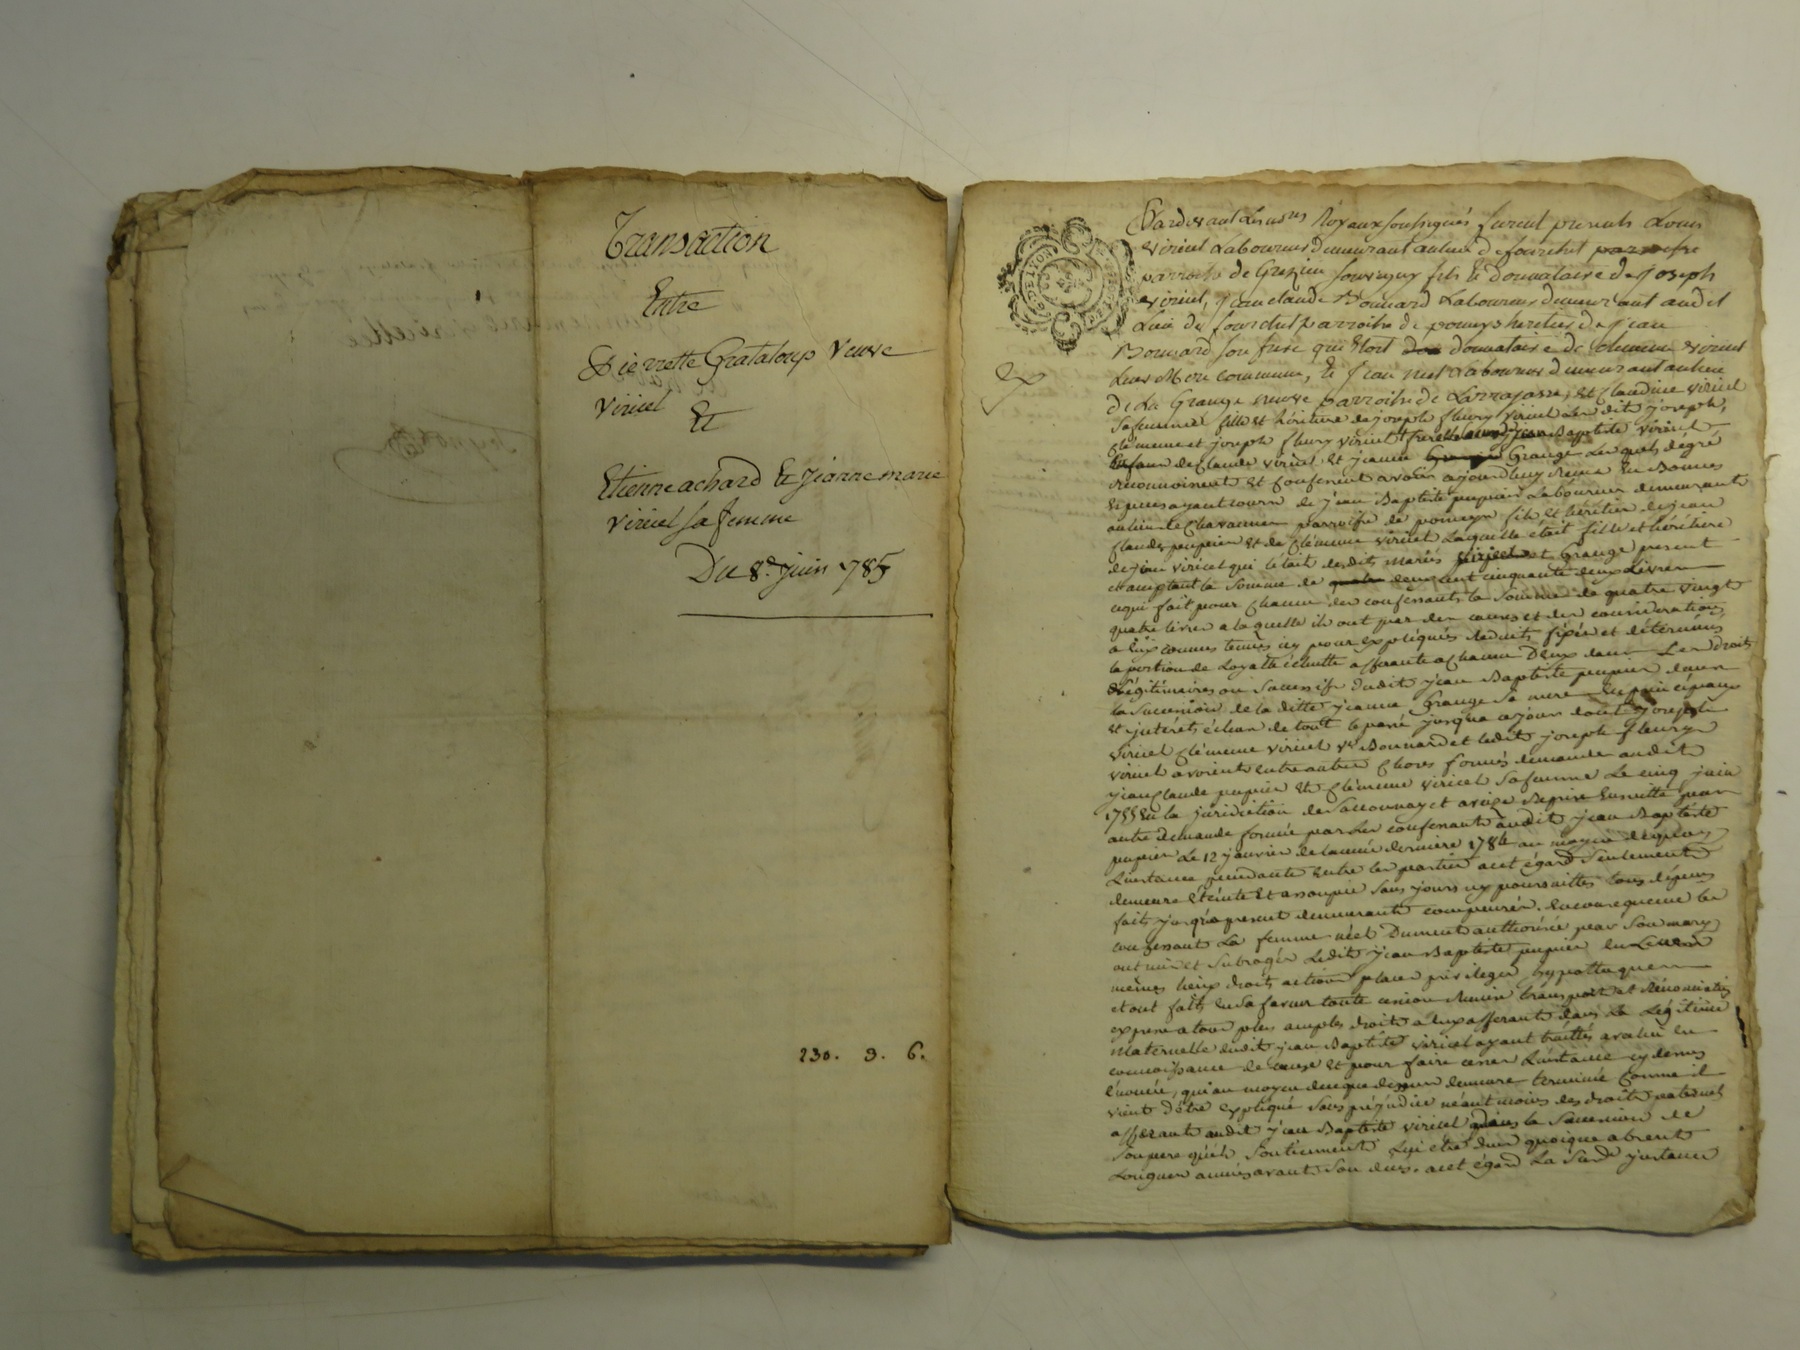 Transaction
Entre
Pierrette Grataloup Veuve
Viricel
Et
Etienne achard Et Jeanne marie
Viricel sa femme
Du 8e. juin 1785
230. 9. 6.
Pardevant Les nres Royaux soussignés furent presents Louis
viricel Laboureur demeurant au lieu de fourchet
parroisse de Grezieu souvrigny fils et donnataire de Joseph
viricel, Jean claude Bonnard Laboureur demeurant audit
Lieu de fourchet parroisse de pomeys heritier de Jean
Bonnard son frere qui Etoit donnataire de clemence viricel
Leur Mere commune, Et Jean neel Laboureur demeurant au lieu
De La Grange neuve parroisse de Larrajasse, et Claudine viricel
Sa femme fille et héritiere de joseph fleury viricel lesdits joseph,
Clémence et joseph fleury viricel Baptiste viricel
Enfans de Claude viricel et jeanne Grange Lesquels de gré
reconnoissent et confessent avoir aujourd'huy Reçu En Bonnes
Especes ayant cours de jean Baptiste pupier Laboureur demeurant
au lieu de Chavannes parroisse de pomeys fils et héritier de jean
Claude pupier et de Clémence viricel Laquelle était fille et héritiere
de jean viricel qui l'était desdits mariés viricel et Grange present
Et acceptant la somme de deux cent cinquante deux Livres
ce qui fait pour Chacun des confessants la somme de quatre vingt
quatre livres a laquelle ils ont par des causes et des considerations
a Eux connues tenües icy pour expliquées reduit, fixée et déterminé
la portion de Loyalle échutte afferante a Chacun D'eux dans Les droits
Légitimaires ou successifs dudit jean Baptiste dans
la succession de la ditte jeanne Grange sa mere En principaux
et jnterêts échus de tout le passé jusqu'a ce jour dont joseph
viricel Clémence viricel ve Bonnard et ledit joseph fleury
viricel avoient entre autres Choses formés demande audit
jean Claude pupier Et Clémence viricel sa femme Le cinq juin
1755 En la juridiction de Saconnay et Ensuitte par
autre demande formée par les confessants audit jean Baptiste
pupier Le 12 janvier de l'année derniere 1784 au moyen de quoy
L'instance pendante Entre les parties a cet égard seulement
demeure Eteinte Et assoupie sans pouvoir y poursuittes tous dépens
faits jusqu'a present demeurants compensés. En consequence les
confessant La femme néel Dument authorisée par son mary
ont mis et subrogés Ledit jean Baptiste pupier En Leurs
mêmes lieux droits actions places privileges hypotheques
et ont faits En sa faveur toute cession Remise transport et Rénonciation
expresse a tous plus amples droits a Eux afferants dans La Légitime
Maternelle dudit jean Baptiste viricel ayant traittés avec
connoissance de cause Et pour faire cesser L'instance cy dessus
Enoncée, qui au moyen de ce que dessus demeure terminée Comme il
vient d'être expliqué sans préjudice néantmoins des droits paternels
afférants audit jean Baptiste viricel dans la succession de
son pere qu'ils soutiennent Lui être dus quoique absent
Longues années avant son deces. a cet égard La jnstance